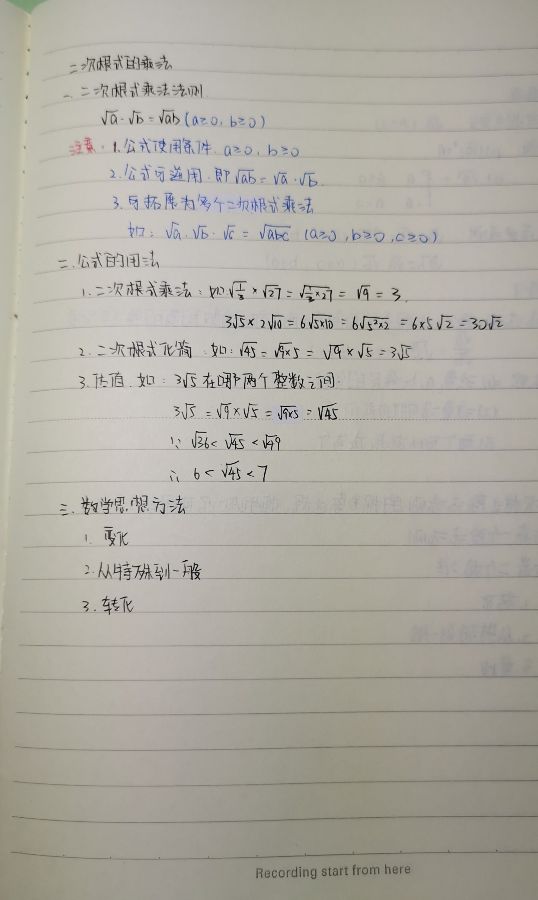 二次根式的乘法
一、二次根式乘法法则
√a·√b=√ab (a≥0, b≥0)
注意: 1.公式使用条件. a≥0, b≥0
2.公式可逆用.即√ab=√a·√b.
3.可拓展为多个二次根式乘法
如: √a·√b·√c=√abc (a≥0, b≥0, c≥0)
二、公式的用法
1.二次根式乘法:如√1/3×√27=√1/3×27=√9=3.
3√5×2√10=6√5×10=6√5²×2=6×5√2=30√2
2.二次根式化简.如:√45=√9×5=√9×√5=3√5
3.估值.如:3√5在哪两个整数之间.
3√5=√9×√5=√9×5=√45
∵ √36<√45<√49
∴ 6<√45<7
三、数学思想方法
1.
2.从特殊到一般
3.转化
Recording start from here